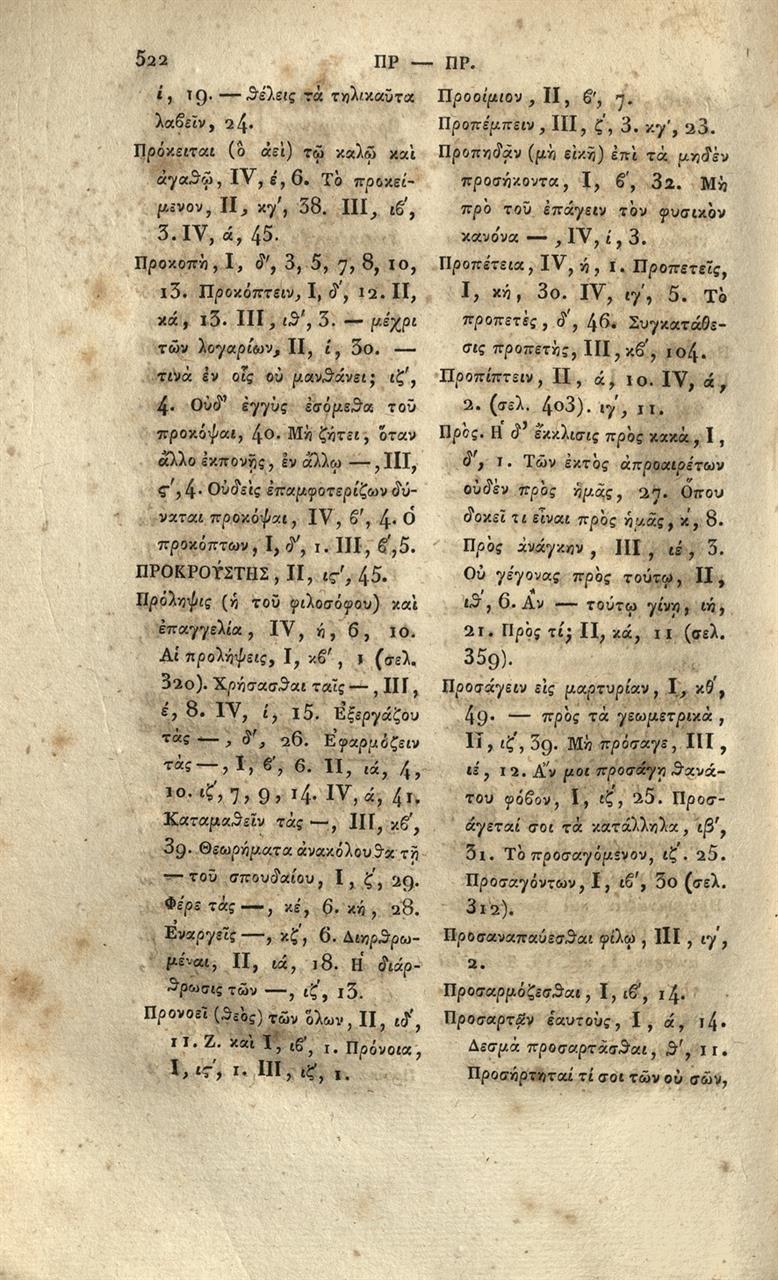 522
ΠΡ — ΠΡ.
ί, 19. — θέλεις τὰ τηλικαῦτα
λαβεῖν, 24.
Πρόκειται (ὃ ἀεὶ) τῷ καλῷ καὶ
ἀγαθῷ, IV, έ, 6. Τὸ προκεί-
μενον, II, κγ', 38. III, ιβ',
3. IV, ά, 45.
Προκοπὴ, I, δ', 3, 5, 7, 8, 10,
13. Προκόπτειν, I, δ', 12. II,
κά, 13. III, ιθ', 3. — μέχρι
τῶν λογαρίων, II, ί, 30. —
τινὰ ἐν οἷς οὐ μανθάνει; ιζ',
4. Οὐδ' ἐγγὺς ἐσόμεθα τοῦ
προκόψαι, 40. Μὴ ζήτει, ὅταν
ἄλλο ἐκπονῇς, ἐν ἄλλῳ —, III,
ς', 4. Οὐδεὶς ἐπαμφοτερίζων δύ-
ναται προκόψαι, IV, β', 4. Ὁ
προκόπτων, I, δ', 1. III, β', 5.
ΠΡΟΚΡΟΥΣΤΗΣ, II, ις', 45.
Πρόληψις (ἡ τοῦ φιλοσόφου) καὶ
ἐπαγγελία, IV, ή, 6, 10.
Αἱ προλήψεις, I, κβ', 1 (σελ.
320). Χρήσασθαι ταῖς —, III,
έ, 8. IV, ί, 15. Ἐξεργάζου
τὰς —, δ', 26. Ἐφαρμόζειν
τὰς —, I, β', 6. II, ιά, 4,
10. ιζ', 7, 9, 14. IV, ά, 41.
Καταμαθεῖν τὰς —, III, κβ',
39. Θεωρήματα ἀνακόλουθα τῇ
— τοῦ σπουδαίου, I, ζ', 29.
Φέρε τὰς —, κέ, 6. κή, 28.
Ἐναργεῖς —, κζ', 6. Διηρθρω-
μέναι, II, ιά, 18. Ἡ διάρ-
θρωσις τῶν —, ιζ', 13.
Προνοεῖ (θεὸς) τῶν ὅλων, II, ιδ',
11. Ζ. καὶ I, ιβ', 1. Πρόνοια,
I, ις', 1. III, ιζ', 1.
Προοίμιον, II, β', 7.
Προπέμπειν, III, ζ', 3. κγ', 23.
Προπηδᾷν (μὴ εἰκῆ) ἐπὶ τὰ μηδὲν
προσήκοντα, I, β', 32. Μὴ
πρὸ τοῦ ἐπάγειν τὸν φυσικὸν
κανόνα —, IV, ί, 3.
Προπέτεια, IV, ή, 1. Προπετεῖς,
I, κή, 30. IV, ιγ', 5. Τὸ
προπετὲς, δ', 46. Συγκατάθε-
σις προπετὴς, III, κβ', 104.
Προπίπτειν, II, ά, 10. IV, ά,
2. (σελ. 403). ιγ', 11.
Πρὸς. Ἡ δ' ἔκκλισις πρὸς κακὰ, I,
δ', 1. Τῶν ἐκτὸς ἀπροαιρέτων
οὐδὲν πρὸς ἡμᾶς, 27. Ὅπου
δοκεῖ τι εἶναι πρὸς ἡμᾶς, κ', 8.
Πρὸς ἀνάγκην, III, ιέ, 3.
Οὐ γέγονας πρὸς τούτῳ, II,
ιθ', 6. Ἂν — τούτῳ γίνῃ, ιή,
21. Πρὸς τί; II, κά, 11 (σελ.
359).
Προσάγειν εἰς μαρτυρίαν, I, κθ',
49. — πρὸς τὰ γεωμετρικὰ,
II, ιζ', 39. Μὴ πρόσαγε, III,
ιέ, 12. Ἄν μοι προσάγῃ θανά-
του φόβον, I, ιζ', 25. Προσ-
άγεταί σοι τὰ κατάλληλα, ιβ',
31. Τὸ προσαγόμενον, ιζ'. 25.
Προσαγόντων, I, ιβ', 30 (σελ.
312).
Προσαναπαύεσθαι φίλῳ, III, ιγ',
2.
Προσαρμόζεσθαι, I, ιβ', 14.
Προσαρτᾷν ἑαυτοὺς, I, ά, 14.
Δεσμὰ προσαρτᾶσθαι, θ', 11.
Προσήρτηταί τί σοι τῶν οὐ σῶν,